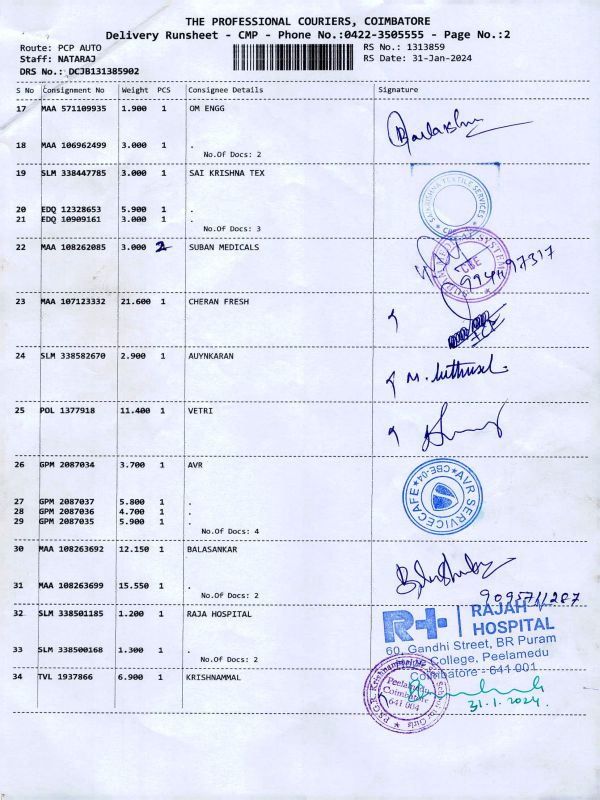 THE PROFESSIONAL COURIERS, COIMBATORE
Delivery Runsheet - CMP - Phone No.:0422-3505555 - Page No.:2
Route: PCP AUTO RS No.: 1313859
Staff: NATARAJ RS Date: 31-Jan-2024
DRS No.: DCJB131385902
S No Consignment No Weight PCS Consignee Details Signature
17 MAA 571109935 1.900 1 OM ENGG
18 MAA 106962499 3.000 1 .
No.Of Docs: 2
19 SLM 338447785 3.000 1 SAI KRISHNA TEX
SAI KRISHNA TEXTILE SERVICES
* CBE *
20 EDQ 12328653 5.900 1 .
21 EDQ 10909161 3.000 1 .
No.Of Docs: 3
22 MAA 108262085 3.000 2 SUBAN MEDICALS
CBE
23 MAA 107123332 21.600 1 CHERAN FRESH
24 SLM 338582670 2.900 1 AUYNKARAN
25 POL 1377918 11.400 1 VETRI
26 GPM 2087034 3.700 1 AVR
AVR SERVICECAFE
CBE-04
27 GPM 2087037 5.800 1 .
28 GPM 2087036 4.700 1 .
29 GPM 2087035 5.900 1 .
No.Of Docs: 4
30 MAA 108263692 12.150 1 BALASANKAR
31 MAA 108263699 15.550 1 .
No.Of Docs: 2
9095711287
32 SLM 338501185 1.200 1 RAJA HOSPITAL
R+ RAJAH
HOSPITAL
60, Gandhi Street, BR Puram
33 SLM 338500168 1.300 1 .
No.Of Docs: 2
College, Peelamedu
Coimbatore - 641 001
34 TVL 1937866 6.900 1 KRISHNAMMAL
Peelamedu
Coimbatore
641 004
31.1.2024.